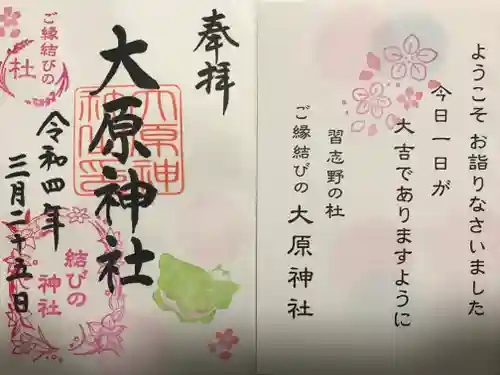 奉拝
ご縁結びの
社
大原神社
大原神
社之印
令和四年
三月二十五日
結びの
神社
ようこそ お詣りなさいました
今日一日が
大吉でありますように
習志野の杜
ご縁結びの 大原神社